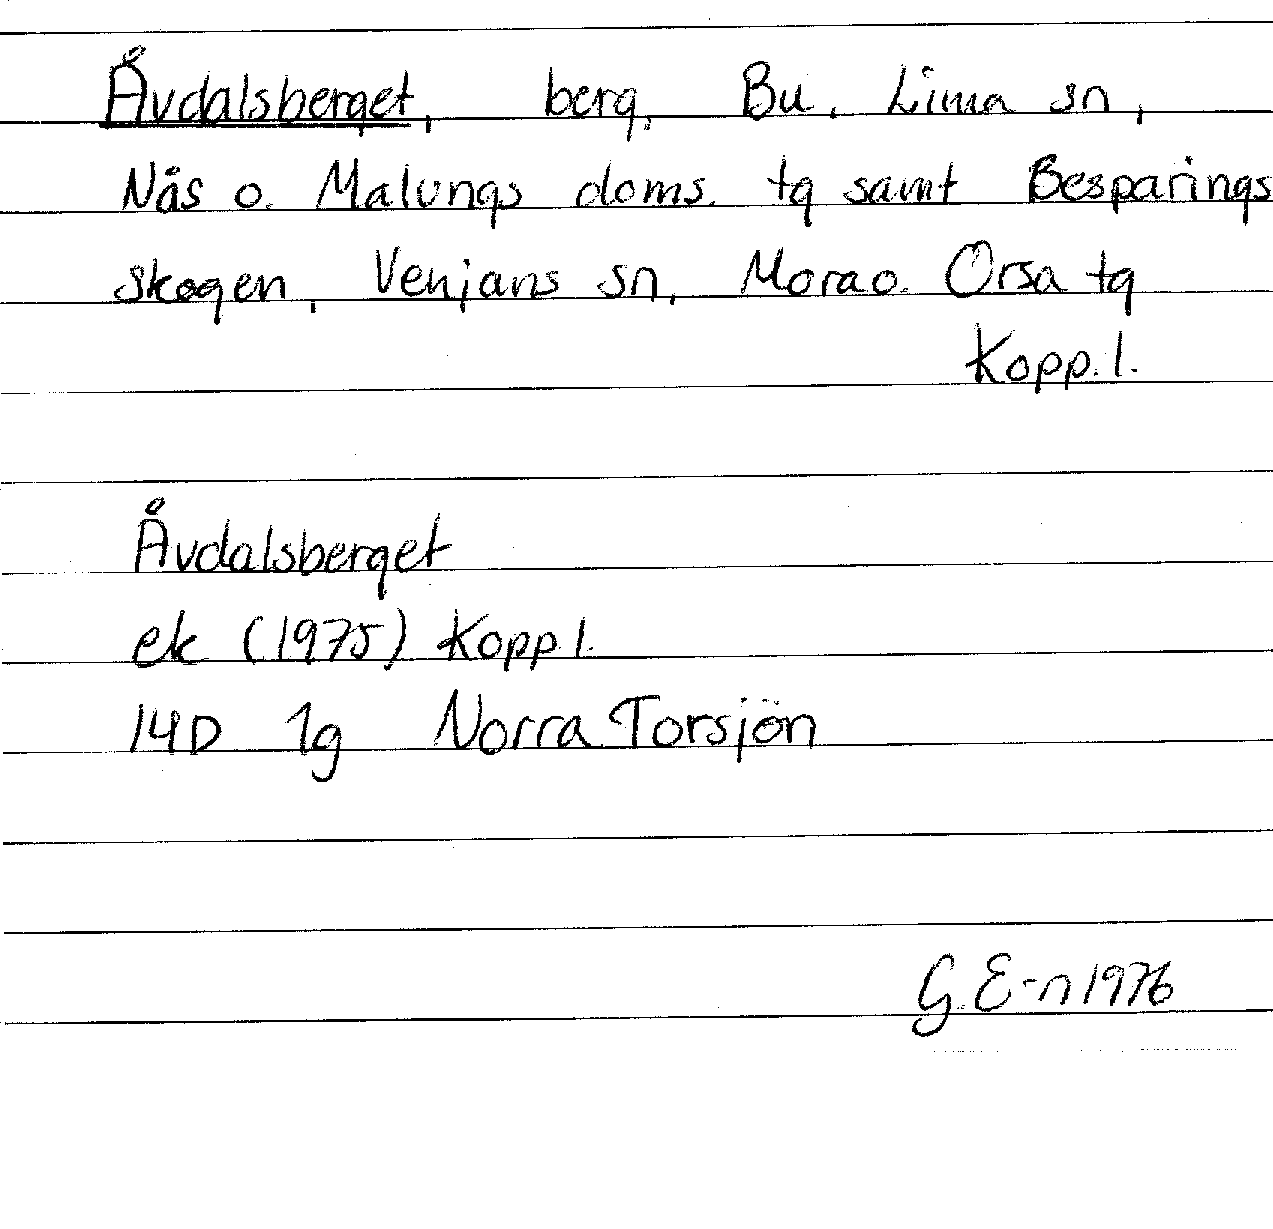 Åvdalsberget, berg, Bu, Lima sn,
Nås o. Malungs doms. tg samt Besparings
skogen, Venjans sn, Mora o. Orsa tg
Kopp. l.
Åvdalsberget
ek (1975) Kopp l.
14D 1g Norra Torsjön
G. E-n 1976